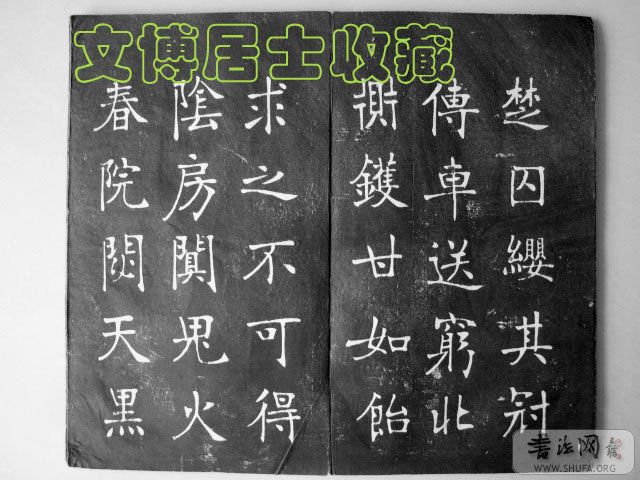 文博居士收藏
楚囚纓其冠
傳車送窮北
鑊甘如飴
求之不可得
陰房闃鬼火
春院閟天黑
书法网
WWW.SHUFA.ORG